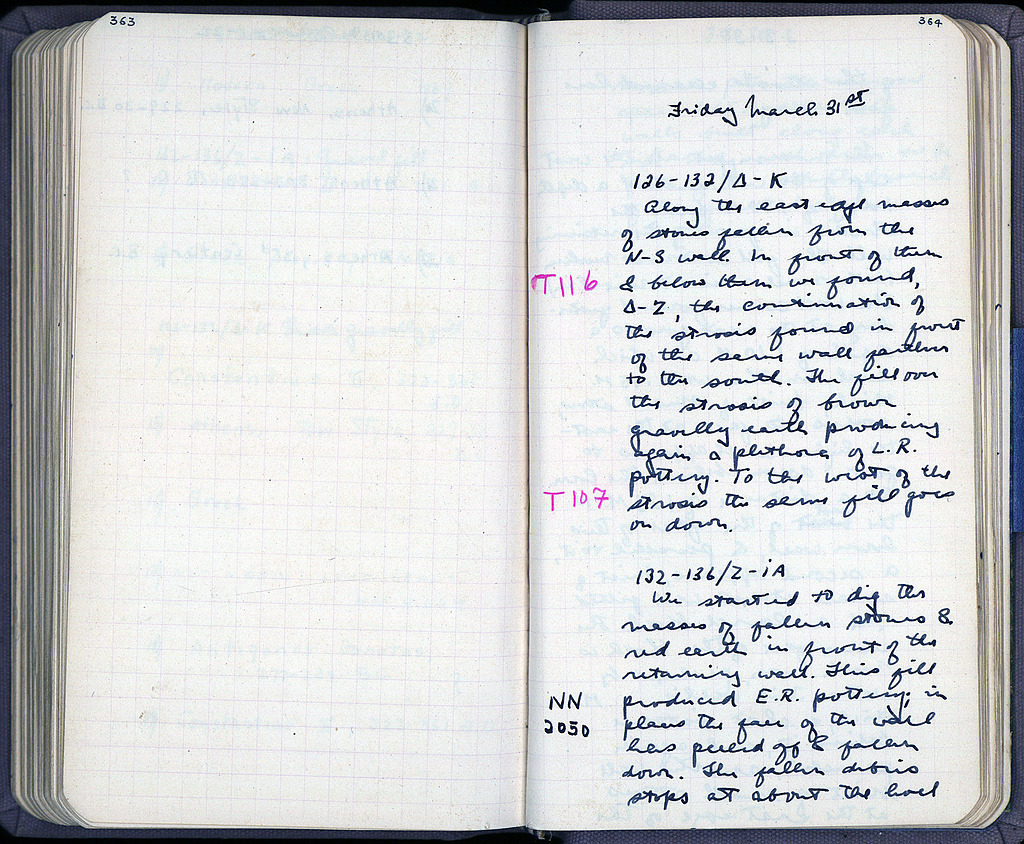 363
364
Friday March 31ST
126-132/Δ-K
Along the east edge masses
of stones fallen from the
N-S wall. In front of them
T116
& below them we found,
Δ-Z, the continuation of
the strosis found in front
of the same wall farther
to the south. The fill over
the strosis of brown
gravelly earth producing
again a plethora of L.R.
pottery. To the west of the
T107
strosis the same fill goes
on down.
132-136/Z-iA
We started to dig the
masses of fallen stones &
red earth in front of the
retaining wall. This fill
NN
2050
produced E.R. pottery; in
places the face of the wall
has peeled off & fallen
down. The fallen debris
stops at about the level